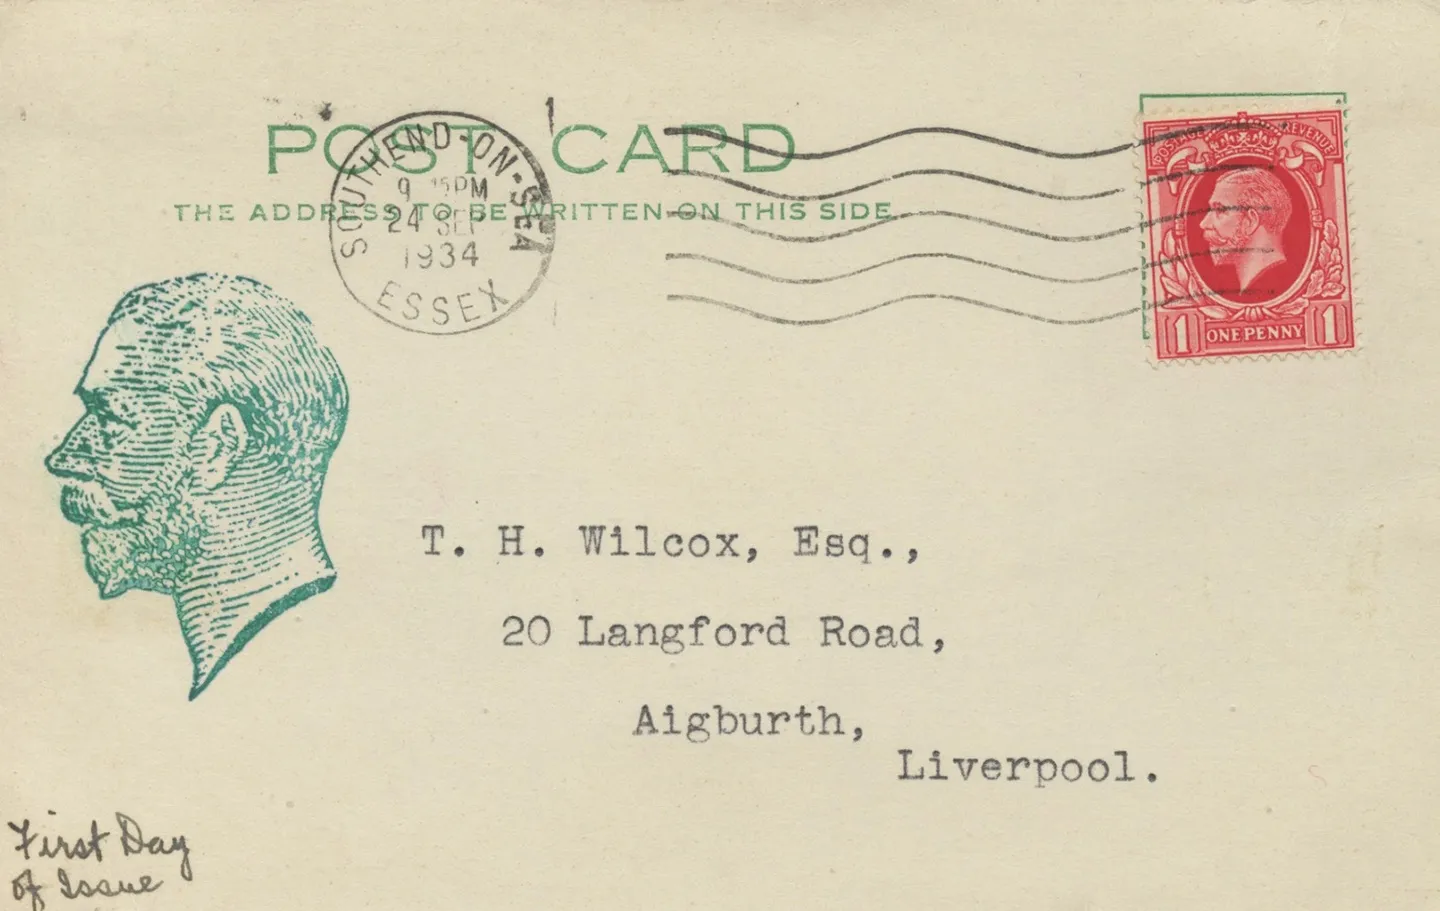 POST CARD
THE ADDRESS TO BE WRITTEN ON THIS SIDE
SOUTHEND-ON-SEA
9 15PM
24 SEP
1934
ESSEX
1
POSTAGE REVENUE
1 ONE PENNY 1
T. H. Wilcox, Esq.,
20 Langford Road,
Aigburth,
Liverpool.
First Day
of Issue